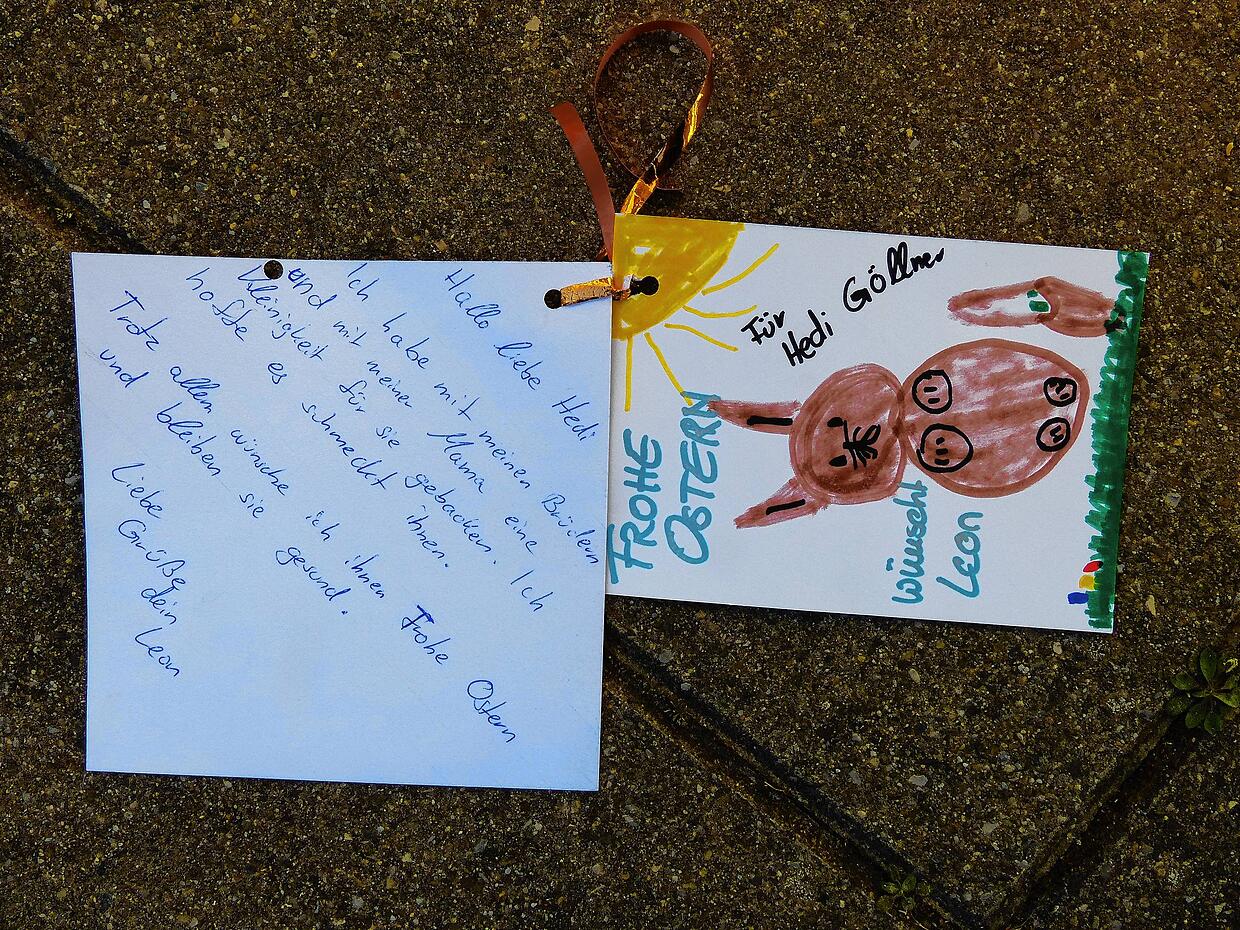 Hallo liebe Hedi
Ich habe mit meinen Brüdern
und mit meiner Mama eine
Kleinigkeit für sie gebacken. Ich
hoffe es schmeckt ihnen.
Trotz allem wünsche ich ihnen Frohe Ostern
und bleiben sie gesund.
Liebe
Grüße
dein
Leon
Für
Hedi Göllner
FROHE
OSTERN
wünscht
LEON